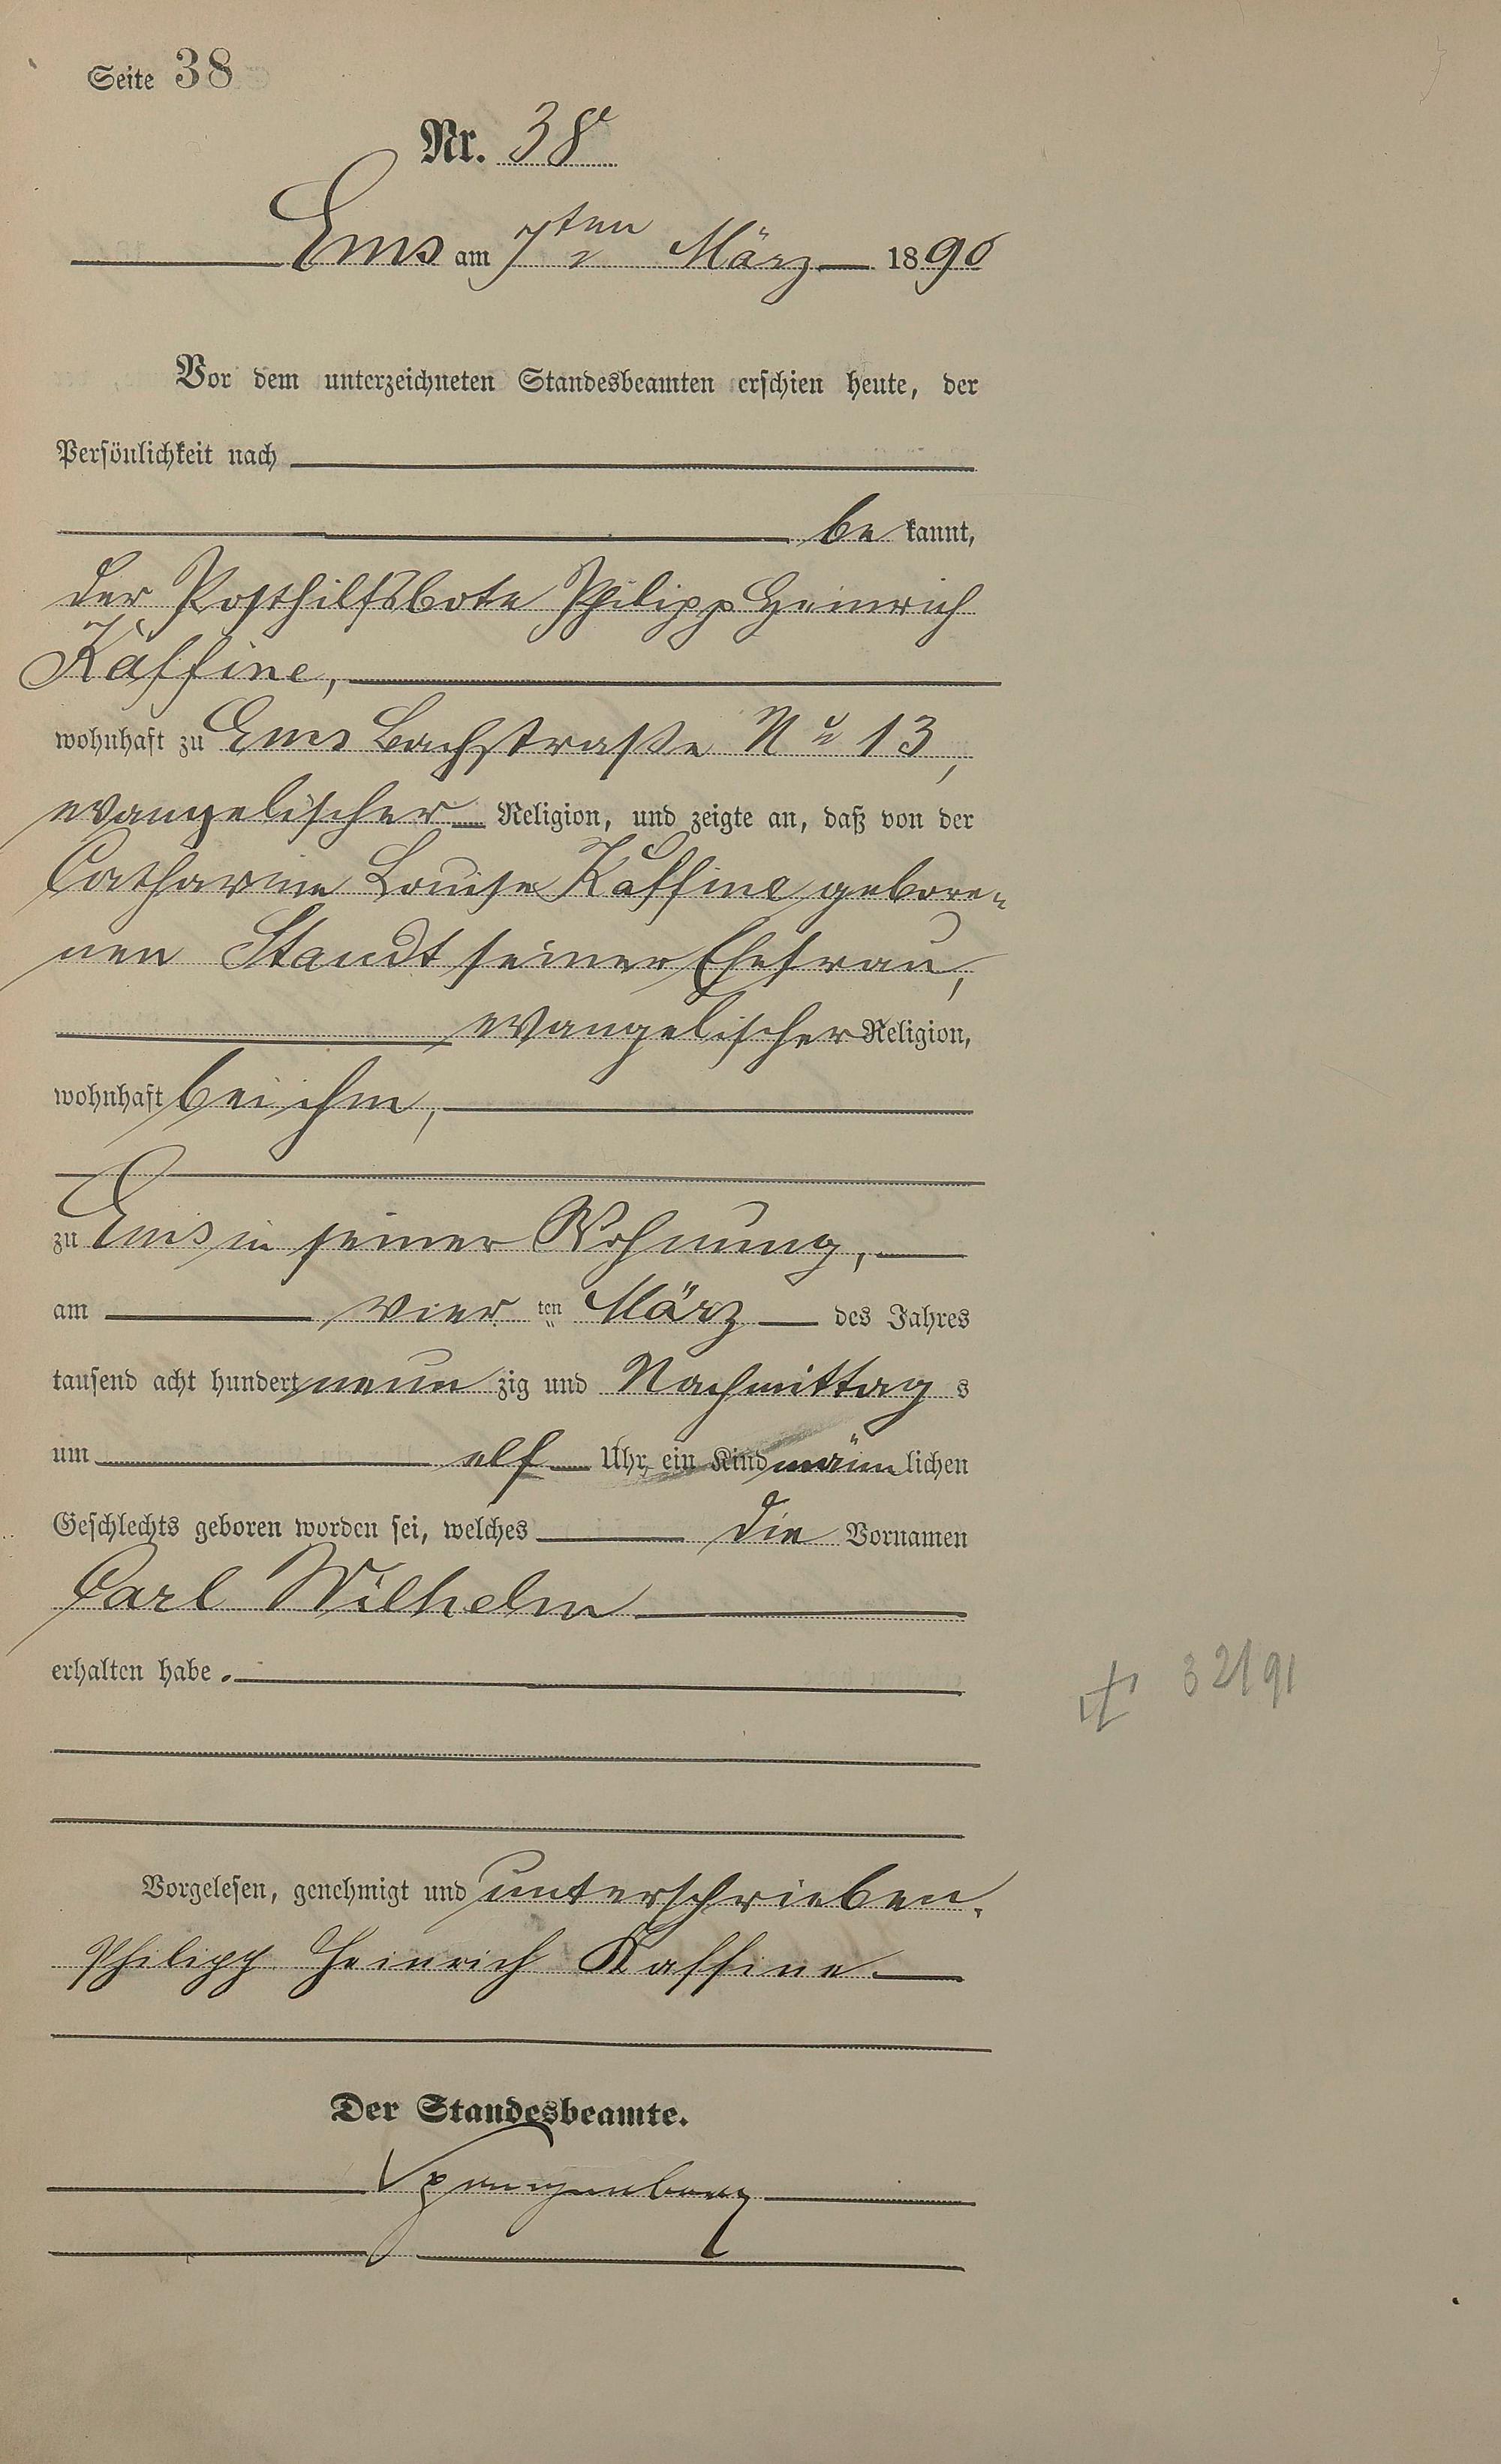 Seite 38
Nr. 38
Ems am 7ten März 1890
Vor dem unterzeichneten Standesbeamten erschien heute, der
Persönlichkeit nach
be kannt,
der Posthilfsbote Philipp Heinrich
Kaffine,
wohnhaft zu Ems Bachstraße No 13,
evangelischer Religion, und zeigte an, daß von der
Catharine Louise Kaffine gebore-
nen Staudt seiner Ehefrau,
evangelischer Religion,
wohnhaft bei ihm,
zu Ems in seiner Wohnung,
am vier ten März des Jahres
tausend acht hundert neun zig und Nachmittag s
um elf Uhr, ein Kind männlichen
Geschlechts geboren worden sei, welches die Vornamen
Carl Wilhelm
erhalten habe.
† 32/91
Vorgelesen, genehmigt und unterschrieben.
Philipp Heinrich Kaffine
Der Standesbeamte.
Spangenberg